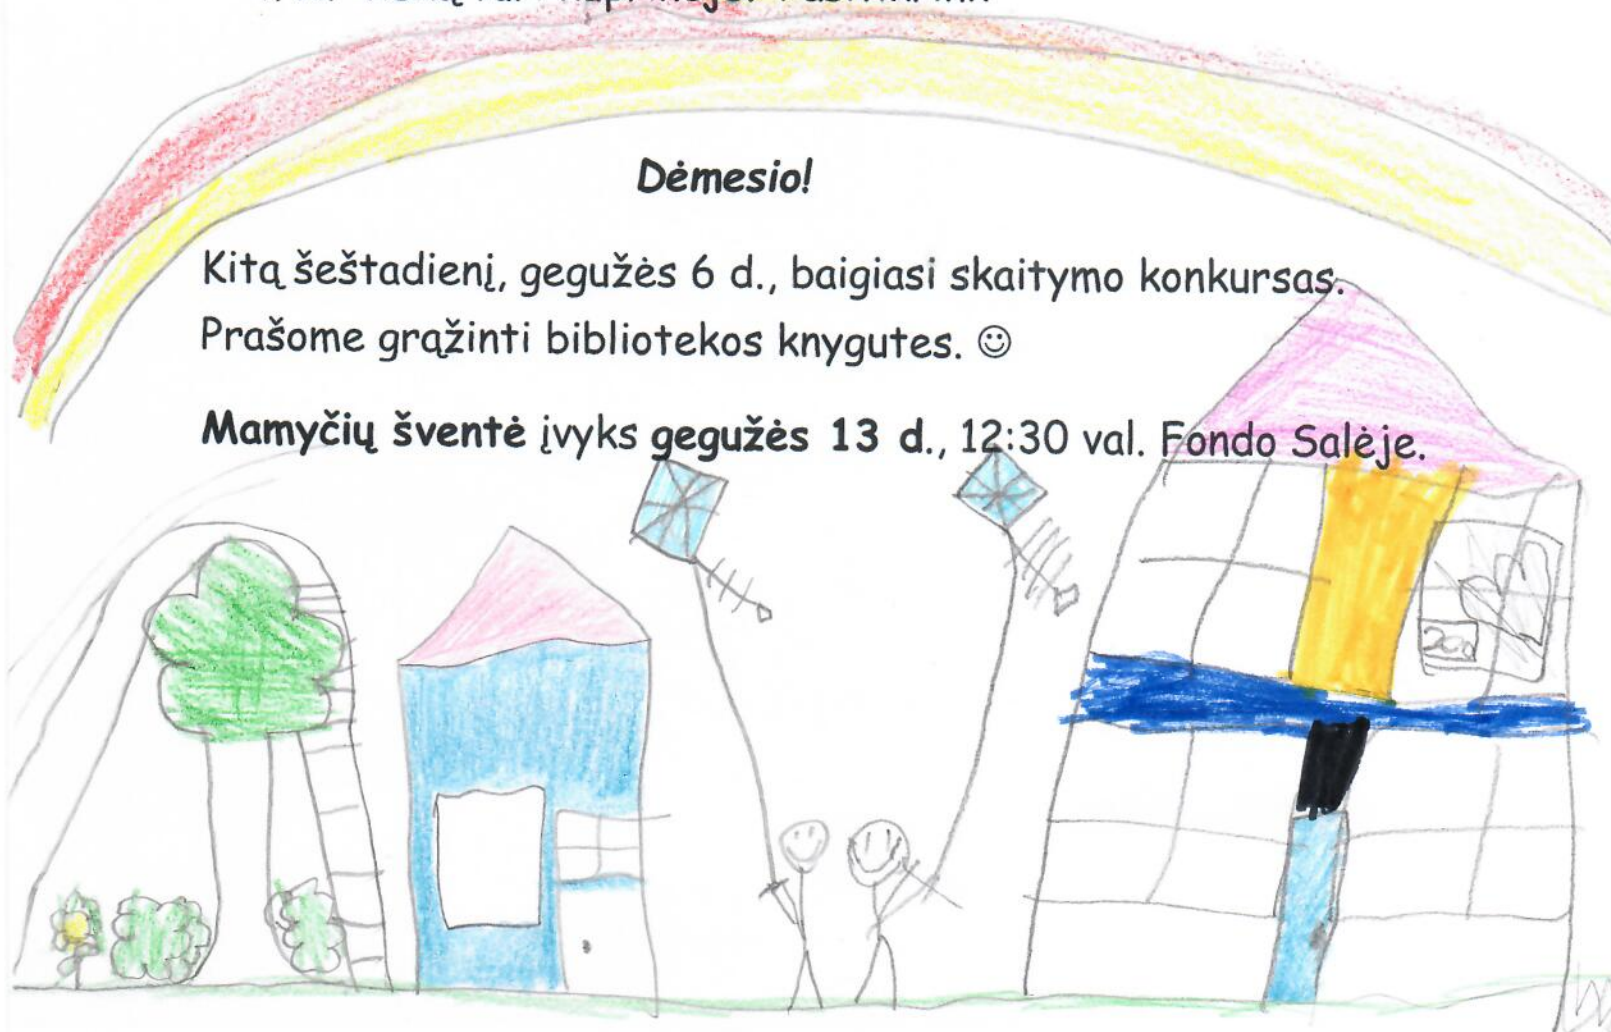 Dėmesio!
Kitą šeštadienį, gegužės 6 d., baigiasi skaitymo konkursas.
Prašome grąžinti bibliotekos knygutes. ☺
Mamyčių šventė įvyks gegužės 13 d., 12:30 val. Fondo Salėje.